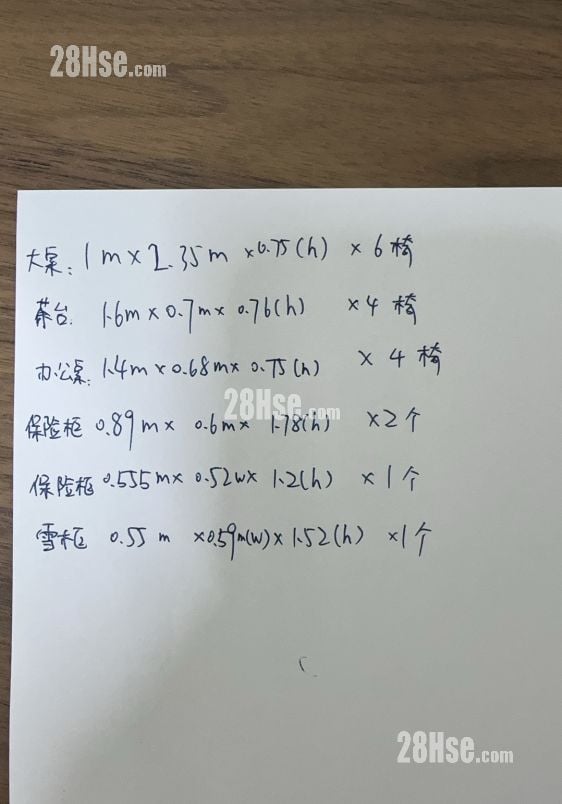 28Hse.com
大桌: 1m×2.35m ×0.75(h) ×6椅
茶台: 1.6m×0.7m×0.76(h) ×4 椅
办公桌: 1.4m×0.68m×0.75(h) × 4 椅
28Hse.com
保险柜 0.89m× 0.6m× 1.78(h) ×2个
保险柜 0.555m× 0.52w× 1.2(h) ×1个
雪柜 0.55 m ×0.59m(w)×1.52(h) ×1个
28Hse.com